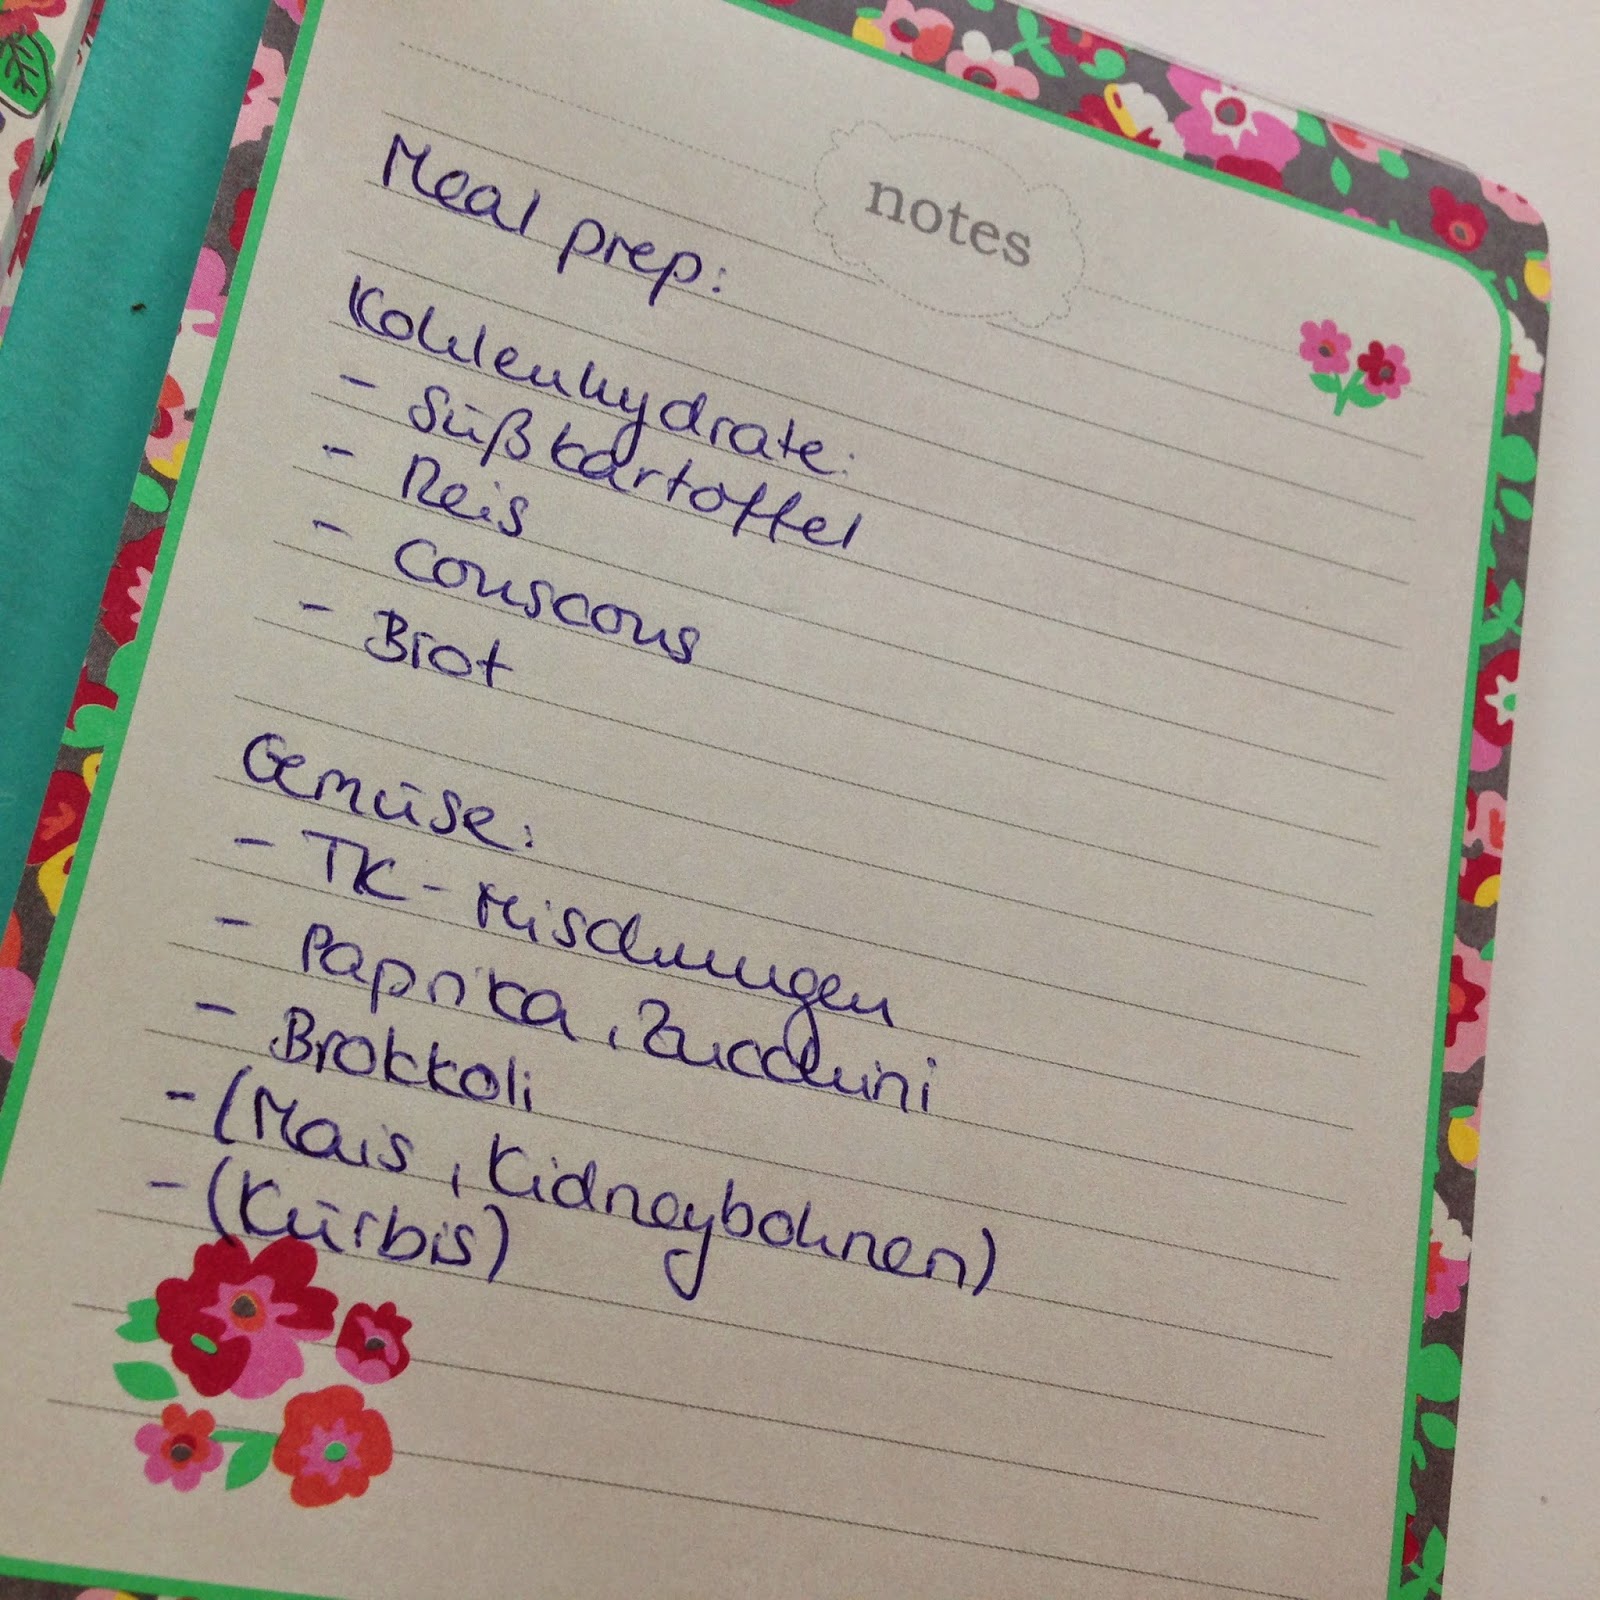 notes
Meal prep:
Kohlenhydrate:
- Süßkartoffel
- Reis
- Couscous
- Brot
Gemüse:
- TK-Mischungen
- Paprika, Zucchini
- Brokkoli
- (Mais, Kidneybohnen)
- (Kürbis)